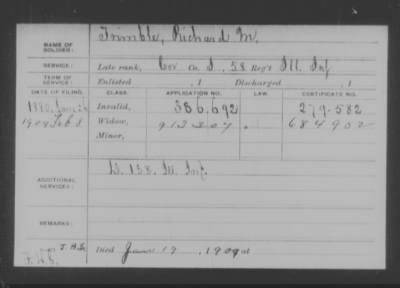 NAME OF SOLDIER: Trimble, Richard M.
SERVICE: Late rank, Cor Co. I, 58 Reg't Ill. Inf
TERM OF SERVICE: Enlisted , 1 Discharged , 1
DATE OF FILING. CLASS. APPLICATION NO. LAW. CERTIFICATE NO.
1880, Invalid, 336.692 279.582
1909 Feb 8 Widow, 913207 684902
Minor,
ADDITIONAL SERVICES: D. 138. Ill. Inf.
REMARKS:
Died 19, 1909 at